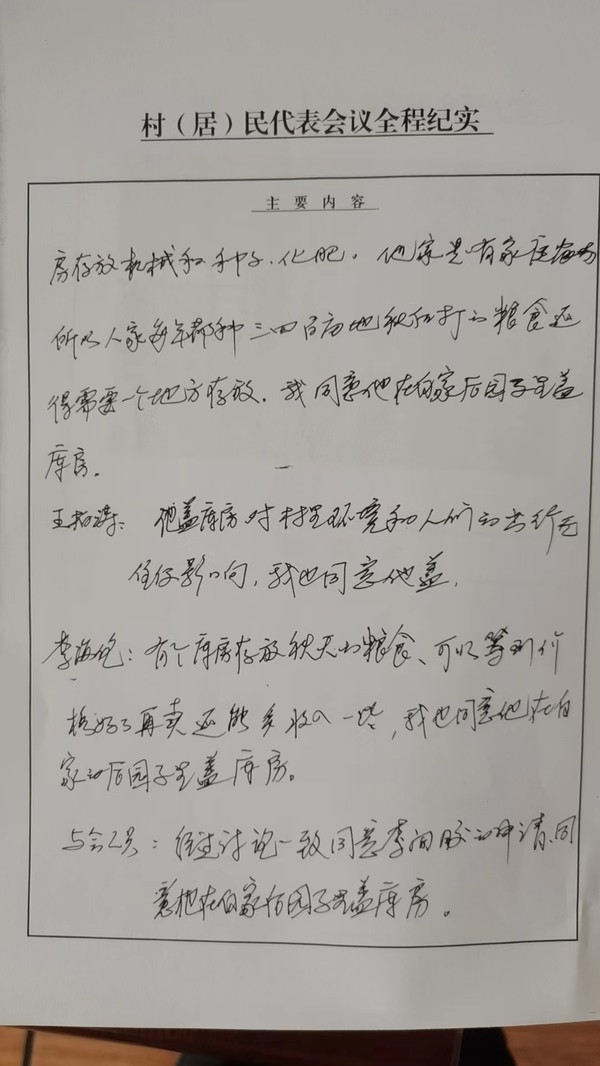 村（居）民代表会议全程纪实
主要内容
房存放机械和种子、化肥。他家是有家庭农场
所以人家每年都种三四百亩地秋后打的粮食还
得需要一个地方存放。我同意他在自家后园子里盖
库房。
王 ：他盖库房对村里环境和人们的出行无
任何影响，我也同意他盖。
李海 ：有个库房存放秋天的粮食、可以等到价
格好了再卖还能多收入一些，我也同意他在自
家的后园子里盖库房。
与会人员：经过讨论一致同意李 的申请，同
意他在自家后园子里盖库房。